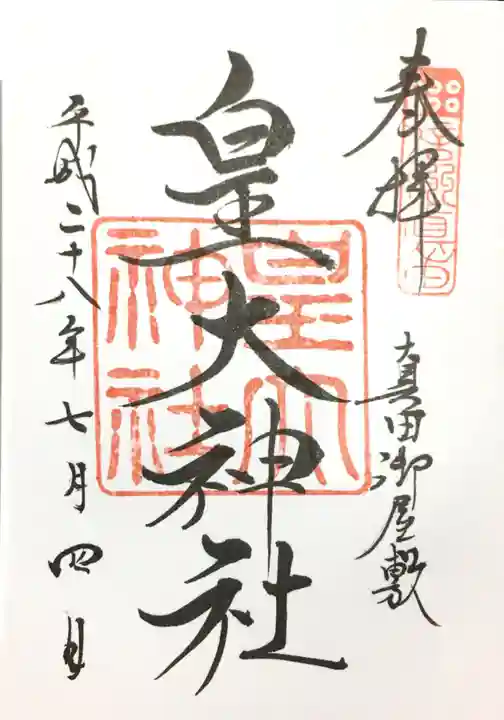 奉拝
真田御屋敷
皇大神社
皇大神社
平成二十八年七月四日